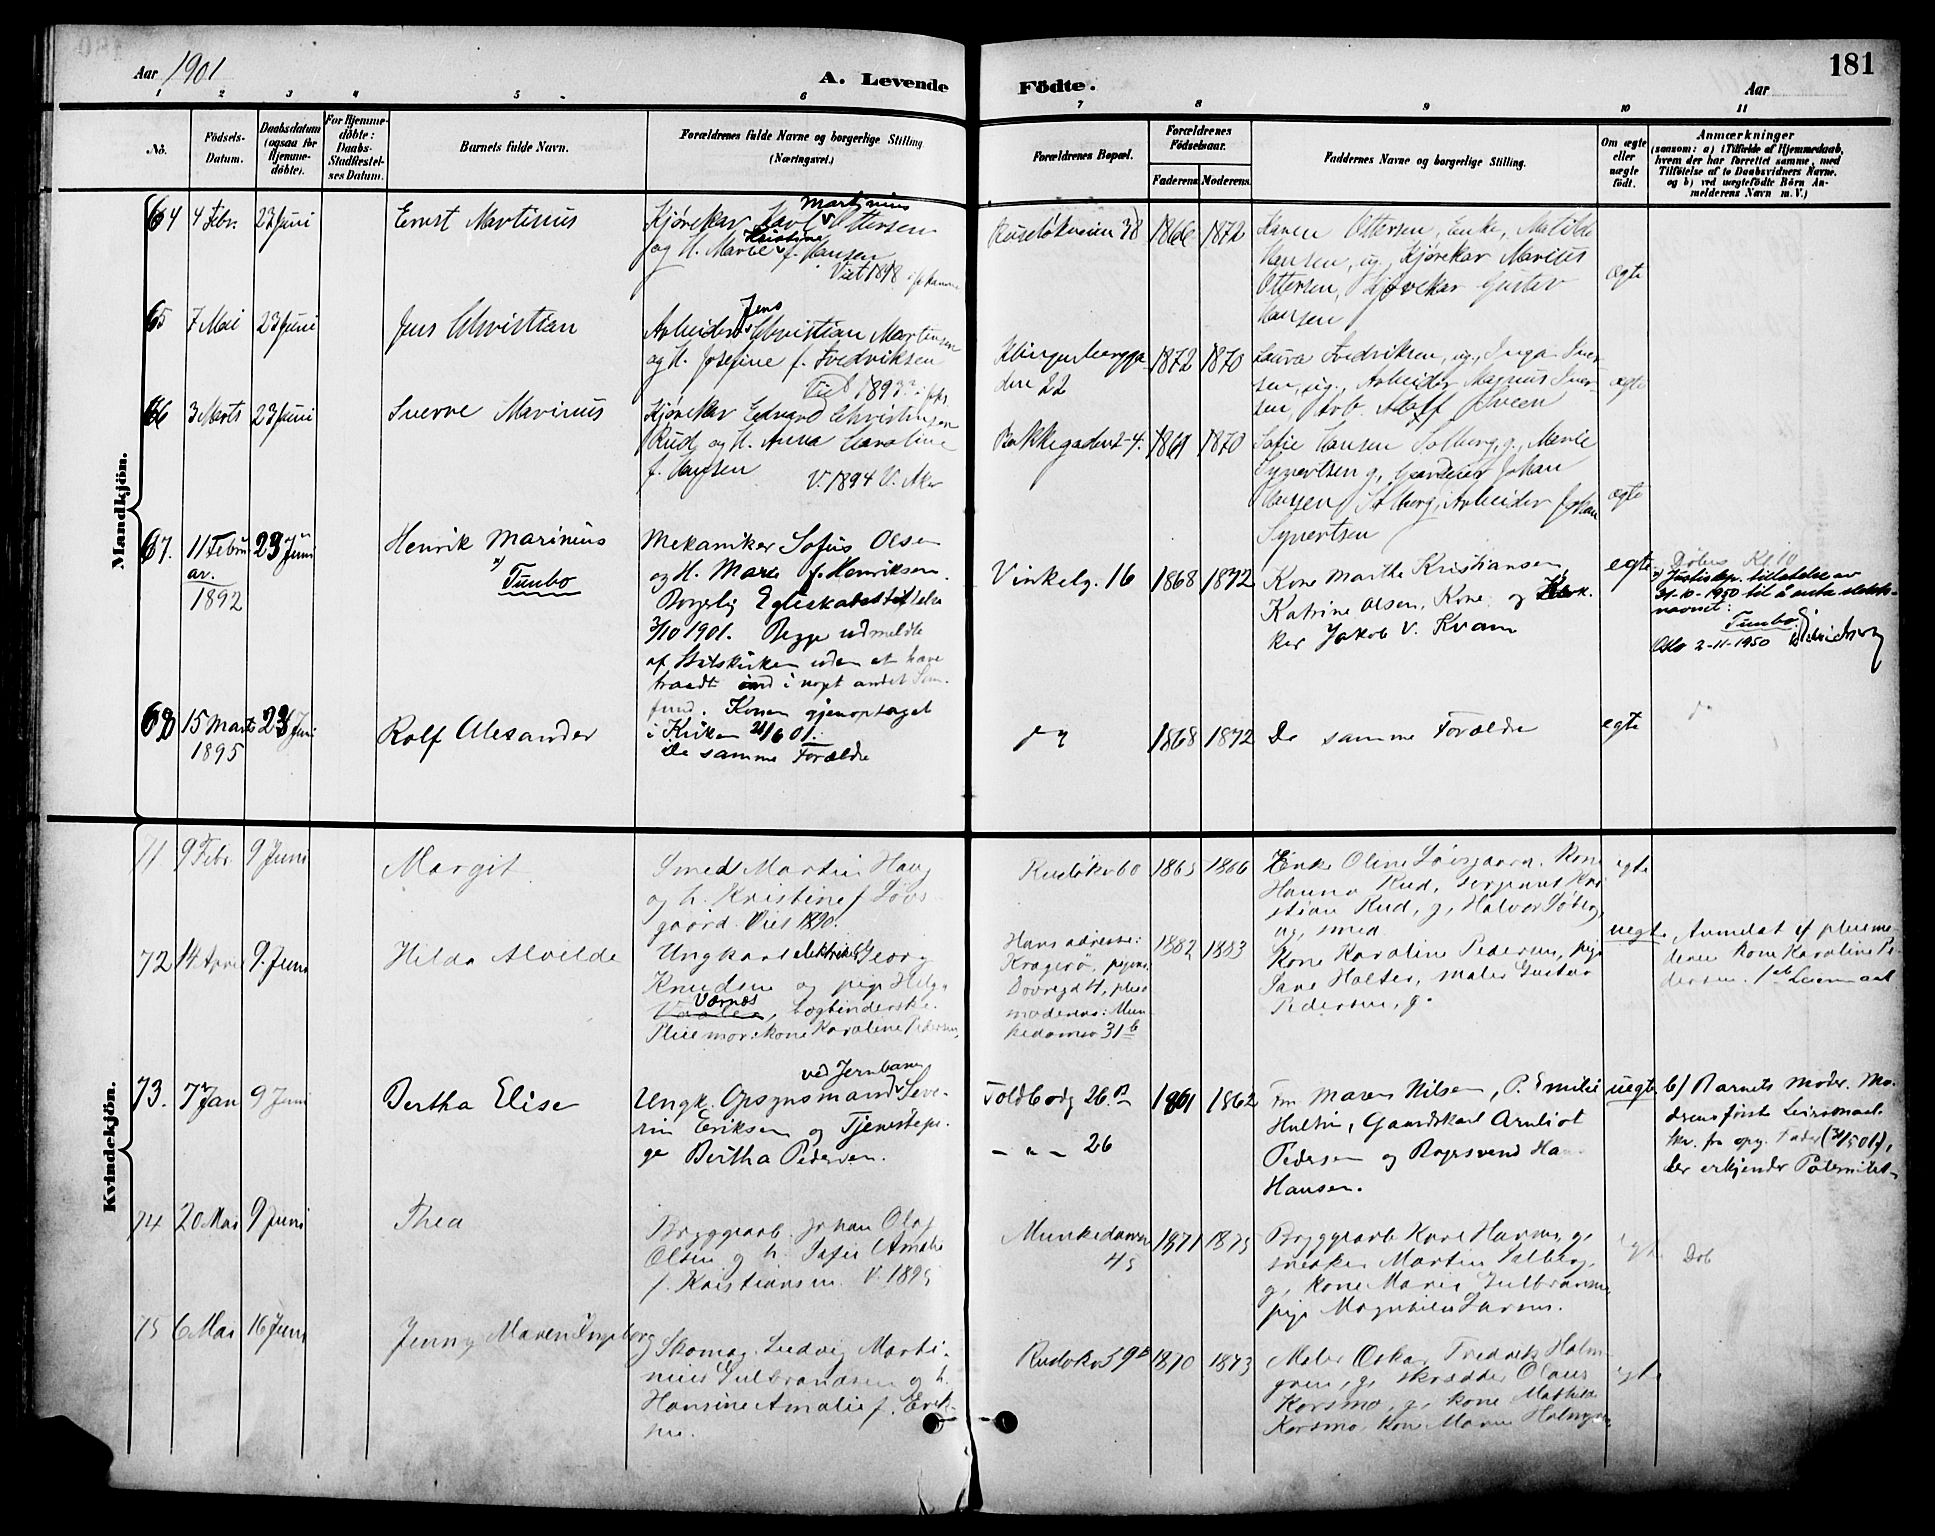 181
Aar 1901
A. Levende Födte.
Aar
1 2 3 4 5 6 7 8 9 10 11
No.
Födsels-Datum.
Daabsdatum (ogsaa for Hjemmedöbte).
For Hjemmedöbte: Daabs-Stadfæstelses Datum.
Barnets fulde Navn.
Forældrenes fulde Navne og borgerlige Stilling (Næringsvei.)
Forældrenes Bopæl.
Forældrenes Födselsaar.
Faderens. Moderens.
Faddernes Navne og borgerlige Stilling.
Om ægte eller uægte födt.
Anmærkninger
(saasom: a) i Tilfælde af Hjemmedaab,
hvem der har forrettet samme, med
Tilföielse af to Daabsvidners Navne.
og b) ved uægtefödte Börn An-
melderens Navn m. V.)
Mandkjön.
64 4 Febr. 23 Juni
Ernst Martinus
Kjørekar Karl Martinius Ottersen
og H. Marie Kristine f. Hansen
Viet 1898
Ruseløkveien 38
1866 1872
Maren Ottersen, Enke, Matilde
Hansen, ug, Kjørekar Marius
Ottersen, Kjørekar Gustav
Hansen
ægte
65 7 Mai 23 Juni
Jens Christian
Arbeider Jens Christian Martinsen
og H. Josefine f. Fredriksen
Viet 1893
Klingenberggaden 22
1872 1870
Laura Fredriksen, ug., Inga Iver-
sen, ug., Arbeider Magnus Iver-
sen, Arb. Adolf Sveen
ægte
66 3 Marts 23 Juni
Sverre Marinus
Kjørekar Edvard Christensen
Rud og H. Anna Caroline
f. Hansen
V. 1894 V. Aker
Bakkegaden 2-4.
1861 1870
Sofie Hansen Solberg, g., Marie
Synertsen g, Gardener Johan
Hansen Solberg, Arbeider Johan
Synertsen
ægte
67. 11 Febru ar. 1892 23 Juni
Henrik Marinius
x) Tunbo
Mekaniker Sofus Olsen
og H. Marie f. Henriksen.
Borgerlig Egteskabsstiftelse
3/10 1901. Begge udmeldte
af Statskirken uden at have
traadt ind i noget andet Sam-
fund. Konen gjenoptaget
i Kirken 21/6 01.
Vinkelg. 16
1868 1872
Kone Marthe Kristiansen,
Katrine Olsen, Kone og
ker Jakob V. Kvam
egte
Døbers Kl. 10
x) Justisdep. tillatelse av
31-10-1950 til å anta slekts-
navnet:
Tunbo
Oslo 2-11-1950
68 15 Marts 1895 23 Juni
Rolf Alexander
De samme Forældre
1868 1872
De samme Forældre
egte
Kvindekjön.
71 9 Febr. 9 Juni
Margit
Smed Martin Haug
og h. Kristine f Løvs-
gaard. Viet 1890.
Ruseløkv 60
1865 1866
Enke Oline Løvsgaard, Kone
Hanna Rud, Sergeant Kri-
stian Rud, g, Halvor Søberg,
ug, smed
egte
72 14 April 9. Juni
Hilda Alvilde
Ungkarl elektriker Georg
Knudsen og pige Helga
Værnes, bogbinderske.
Pleiemor: kone Karoline Pedersen,
Hans adresse:
Kragerø, pigens
Dovregd 4, pleie
moderens: Mun-
kedamsv 31b
1882 1883
Kone Karoline Pedersen, pige
Jane Halter, maler Gustav
Pedersen, g.
uegte
Anmeldt af pleiemo-
deren Kone Karoline Pe-
dersen. 1ste Leiermaal
73. 7 Jan 9 Juni
Bertha Elise
Ungk. Opsynsmand ved Jernbanen Seve-
rin Eriksen og Tjenestepi-
ge Bertha Pedersen.
Toldbodg 26 B
- " - 26
1861 1862
Fru Maren Nilsen, P. Emilie
Hultin, Gaardskarl Arnliot
Pedersen og Bogsvend Ha
Hansen.
uegte
b) Barnets moder. Mo-
derens første Leiermaal.
Skr. fra opg. Fader (31/5 01),
der erkjender Paterniteten
74 20 Mai 9 Juni
Thea
Bryggearb. Johan Olaf
Olsen og h. Sofie Amalie
f. Kristiansen. V. 1895
Munkedamsv 45
1871 1875
Bryggearb Karl Hansen, g,
snedker Martin Solberg,
g, kone Marie Gulbransen
pige Magnhild Larsen.
egte
Døb
75 6 Mai 16 Juni
Jenny Maren Ingeborg
Skomag. Ludvig Marti-
nius Gulbrandsen og h.
Hansine Amalie f. Erik-
sen.
Ruseløkv 59 B
1870 1873
Maler Oskar Fredrik Holm-
gren, g, skrædder Olaus
Korsmo, g, kone Mathilde
Korsmo, kone Maren Holmgren
egte